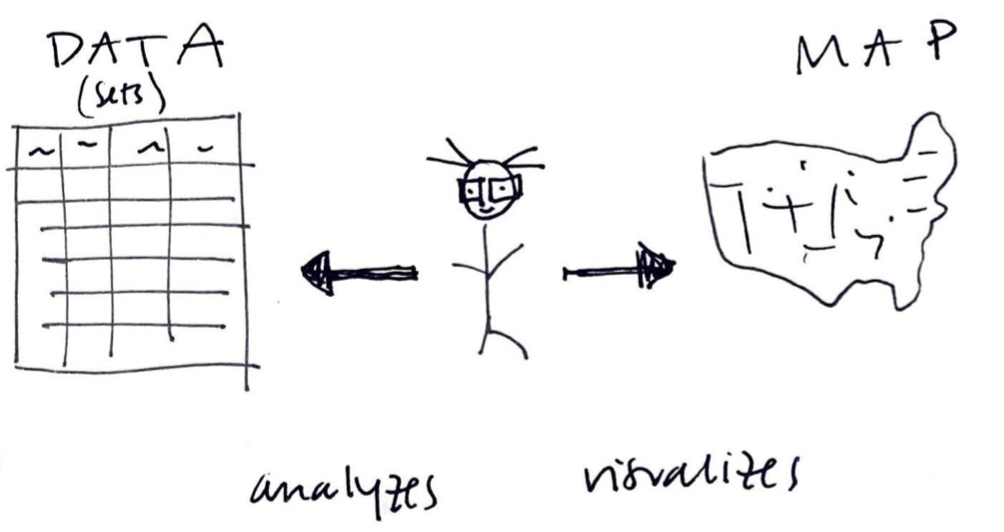 DATA
(sets)
MAP
analyzes
visualizes